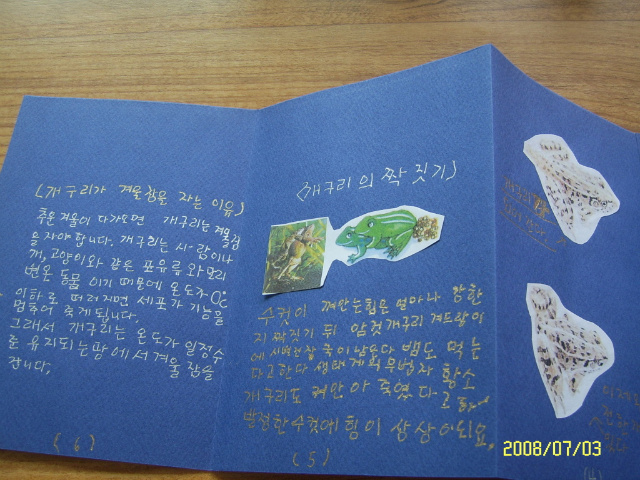 (개구리가 겨울잠을 자는 이유)
추운 겨울이 다가오면 개구리는 겨울잠
을 자야 합니다. 개구리는 사람이나
개, 고양이와 같은 포유류와 달리
변온 동물 이기 때문에 온도가 0℃
이하로 떨어지면 세포가 기능을
멈추어 죽게됩니다.
그래서 개구리는 온도가 일정수
로 유지되는 땅에서 겨울 잠을
잡니다.
(6)
<개구리의 짝짓기>
수컷이 껴안는 힘은 얼마나 강한
지 짝짓기 뒤 암컷개구리 겨드랑이
에 시퍼런 자국이 남는다 뱀도 먹는
다고한다 생태계의 무법자 황소
개구리도 껴안아 죽였다
발정한 수컷에 힘이 상상이되요
(5)
(4)
2008/07/03